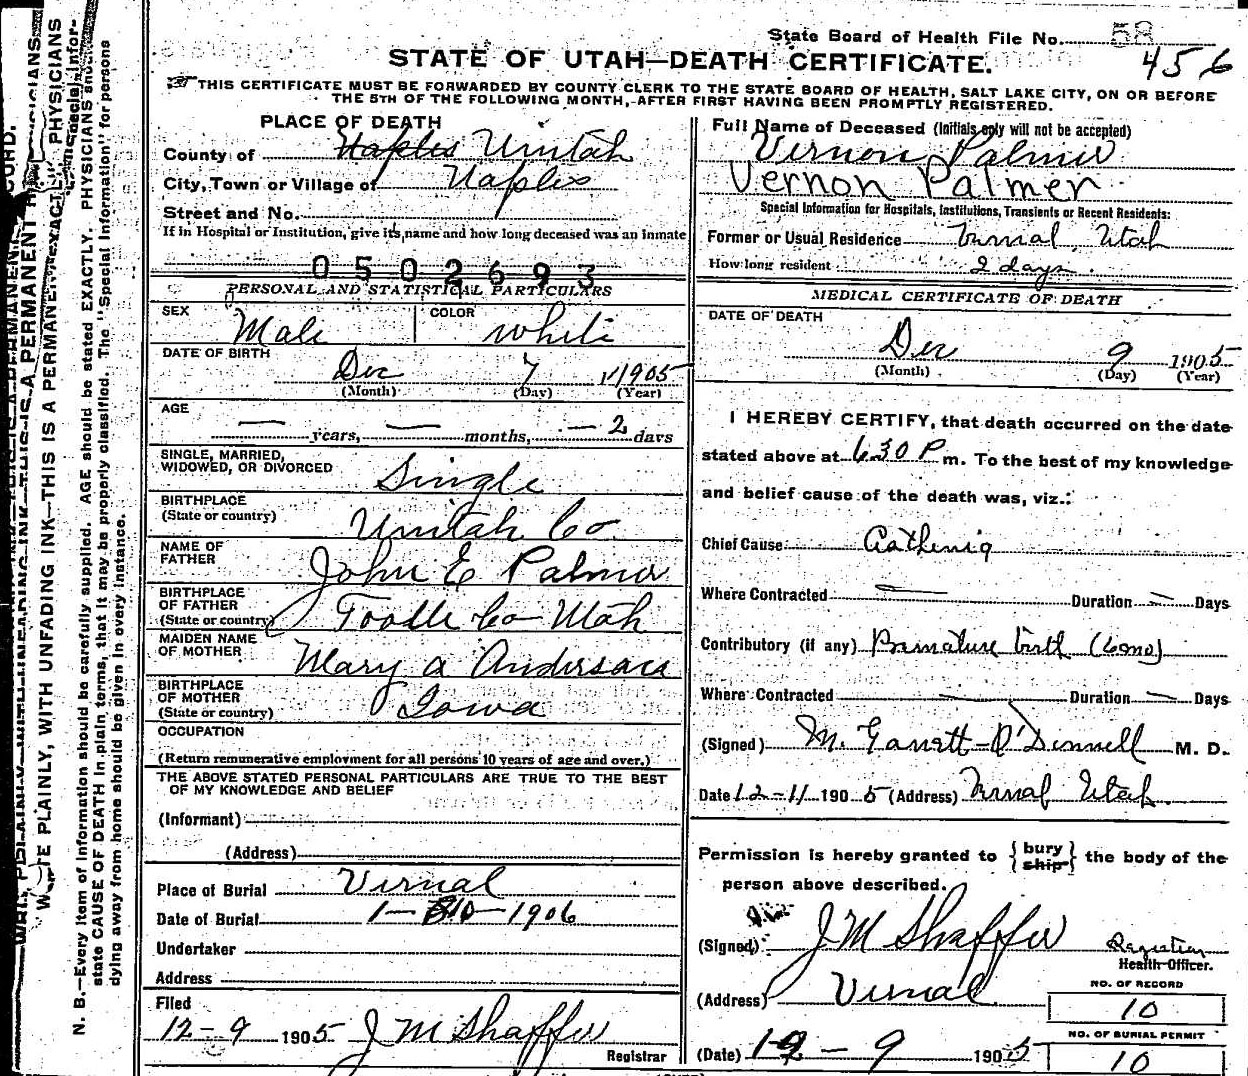 State Board of Health File No. 58
456
STATE OF UTAH—DEATH CERTIFICATE.
THIS CERTIFICATE MUST BE FORWARDED BY COUNTY CLERK TO THE STATE BOARD OF HEALTH, SALT LAKE CITY, ON OR BEFORE
THE 5TH OF THE FOLLOWING MONTH, AFTER FIRST HAVING BEEN PROMPTLY REGISTERED.
PLACE OF DEATH
County of Naples Uintah
City, Town or Village of Naples
Street and No.
If in Hospital or Institution, give its name and how long deceased was an inmate
0502693
PERSONAL AND STATISTICAL PARTICULARS
SEX Male COLOR White
DATE OF BIRTH Dec 7 1905
(Month) (Day) (Year)
AGE
— years, — months, — 2 days
SINGLE, MARRIED,
WIDOWED, OR DIVORCED Single
BIRTHPLACE
(State or country) Uintah Co.
NAME OF
FATHER John E Palmer
BIRTHPLACE
OF FATHER
(State or country) Tooele Co Utah
MAIDEN NAME
OF MOTHER Mary A Anderson
BIRTHPLACE
OF MOTHER
(State or country) Iowa
OCCUPATION
(Return remunerative employment for all persons 10 years of age and over.)
THE ABOVE STATED PERSONAL PARTICULARS ARE TRUE TO THE BEST
OF MY KNOWLEDGE AND BELIEF
(Informant)
(Address)
Place of Burial Vernal
Date of Burial 1— 10—1906
Undertaker
Address
Filed
12—9 1905 J M Shaffer
Registrar
Full Name of Deceased (Initials only will not be accepted)
Vernon Palmer
Vernon Palmer
Special Information for Hospitals, Institutions, Transients or Recent Residents:
Former or Usual Residence Vernal, Utah
How long resident 2 days.
MEDICAL CERTIFICATE OF DEATH
DATE OF DEATH
Dec 9 1905
(Month) (Day) (Year)
I HEREBY CERTIFY, that death occurred on the date
stated above at 6 30 P m. To the best of my knowledge
and belief cause of the death was, viz.:
Chief Cause:
Where Contracted — Duration — Days
Contributory (if any) Premature birth (6 mo)
Where Contracted — Duration — Days
(Signed) M. Garrett O'Donnell M. D.
Date 12-11 1905 (Address) Vernal Utah.
Permission is hereby granted to {bury ship} the body of the
person above described.
(Signed) J M Shaffer Registrar
Health Officer.
(Address) Vernal
(Date) 12 — 9 1905
NO. OF RECORD
10
NO. OF BURIAL PERMIT
10
WRITE PLAINLY, WITH UNFADING INK—THIS IS A PERMANENT RECORD.
N. B.—Every item of information should be carefully supplied. AGE should be stated EXACTLY. PHYSICIANS should
state CAUSE OF DEATH in plain terms, that it may be properly classified. The "Special Information" for persons
dying away from home should be given in every instance.